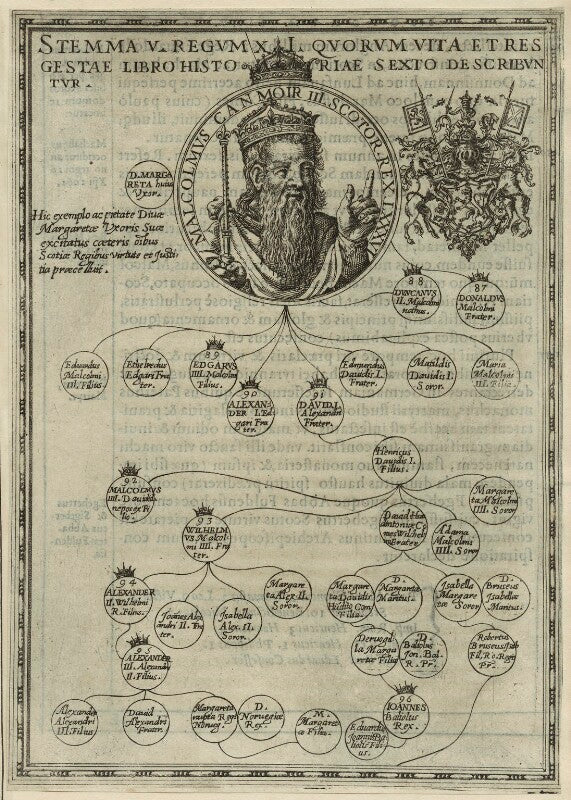 STEMMA V. REGVM X I. QVORVM VITA ET RES
GESTAE LIBRO HISTORIAE SEXTO DESCRIBVN
TVR.
MALCOLMVS CANMOIR III. SCOTOR. REX LXXXVI
D. MARGA
RETA huius
Vxor.
Hic exemplo ac pietate Diuæ
Margaretæ Vxoris Suæ
excitatus cœteris oibus
Scotiæ Regibus virtute et Iusti
tia præcelluit.
88
DVNCANVS
II. Malcolmi
nothus.
87
DONALDVS
Malcolmi
Frater.
Eduardus
Malcolmi
III. Filius
Etheldredus
Edgari Fra
ter.
89
EDGARVS
III. Malcolmi
Filius.
Edmundus
Dauidis I.
Frater.
Matildis
Dauidis I.
Soror.
Maria
Malcolmi
III. Filia
90
ALEXAN
DER I. Ed
gari Fra
ter.
91
DAVID I.
Alexandri
Frater.
Henricus
Dauidis I.
Filius.
92
MALCOLMVS
IIII. Dauidis
nepos ex Fi
lio.
Margare
ta Malcolmi
IIII. Soror
93
WILHELM
VS Malcol
mi IIII. Fra
ter.
Dauid Hun
tintoniæ Co
mes Wilhel
mi Frater
Adama
Malcolmi
IIII. Soror
94
ALEXANDER
II. Wilhelmi
R. Filius.
Ioannes Alex
andri II. Fra
ter.
Isabella
Alex. II.
Soror.
Margare
ta Alex. II.
Soror.
Margare
ta Dauidis
Filia
D.
Margaretæ
Maritus.
Isabella
Margare
tæ Soror
D.
Bruseus
Isabellæ
Maritus.
95
ALEXANDER
III. Alexandri
II. Filius.
Deruogil
la Marga
retæ Filia
D.
Baliolus
Ion. Bal.
R. Pr.
Robertus
Bruseus
Fil. Ro. Regis
Pr.
Alexander
Alexandri
III. Filius
Dauid
Alexandri
Frater.
Margareta
nupta Regi
Norueg.
D.
Noruegiæ
Rex.
M.
Margaret
æ Filia.
96
IOANNES
Baliolus
Rex.
Eduardus
Ioannis Ba
lioli Fili
us.